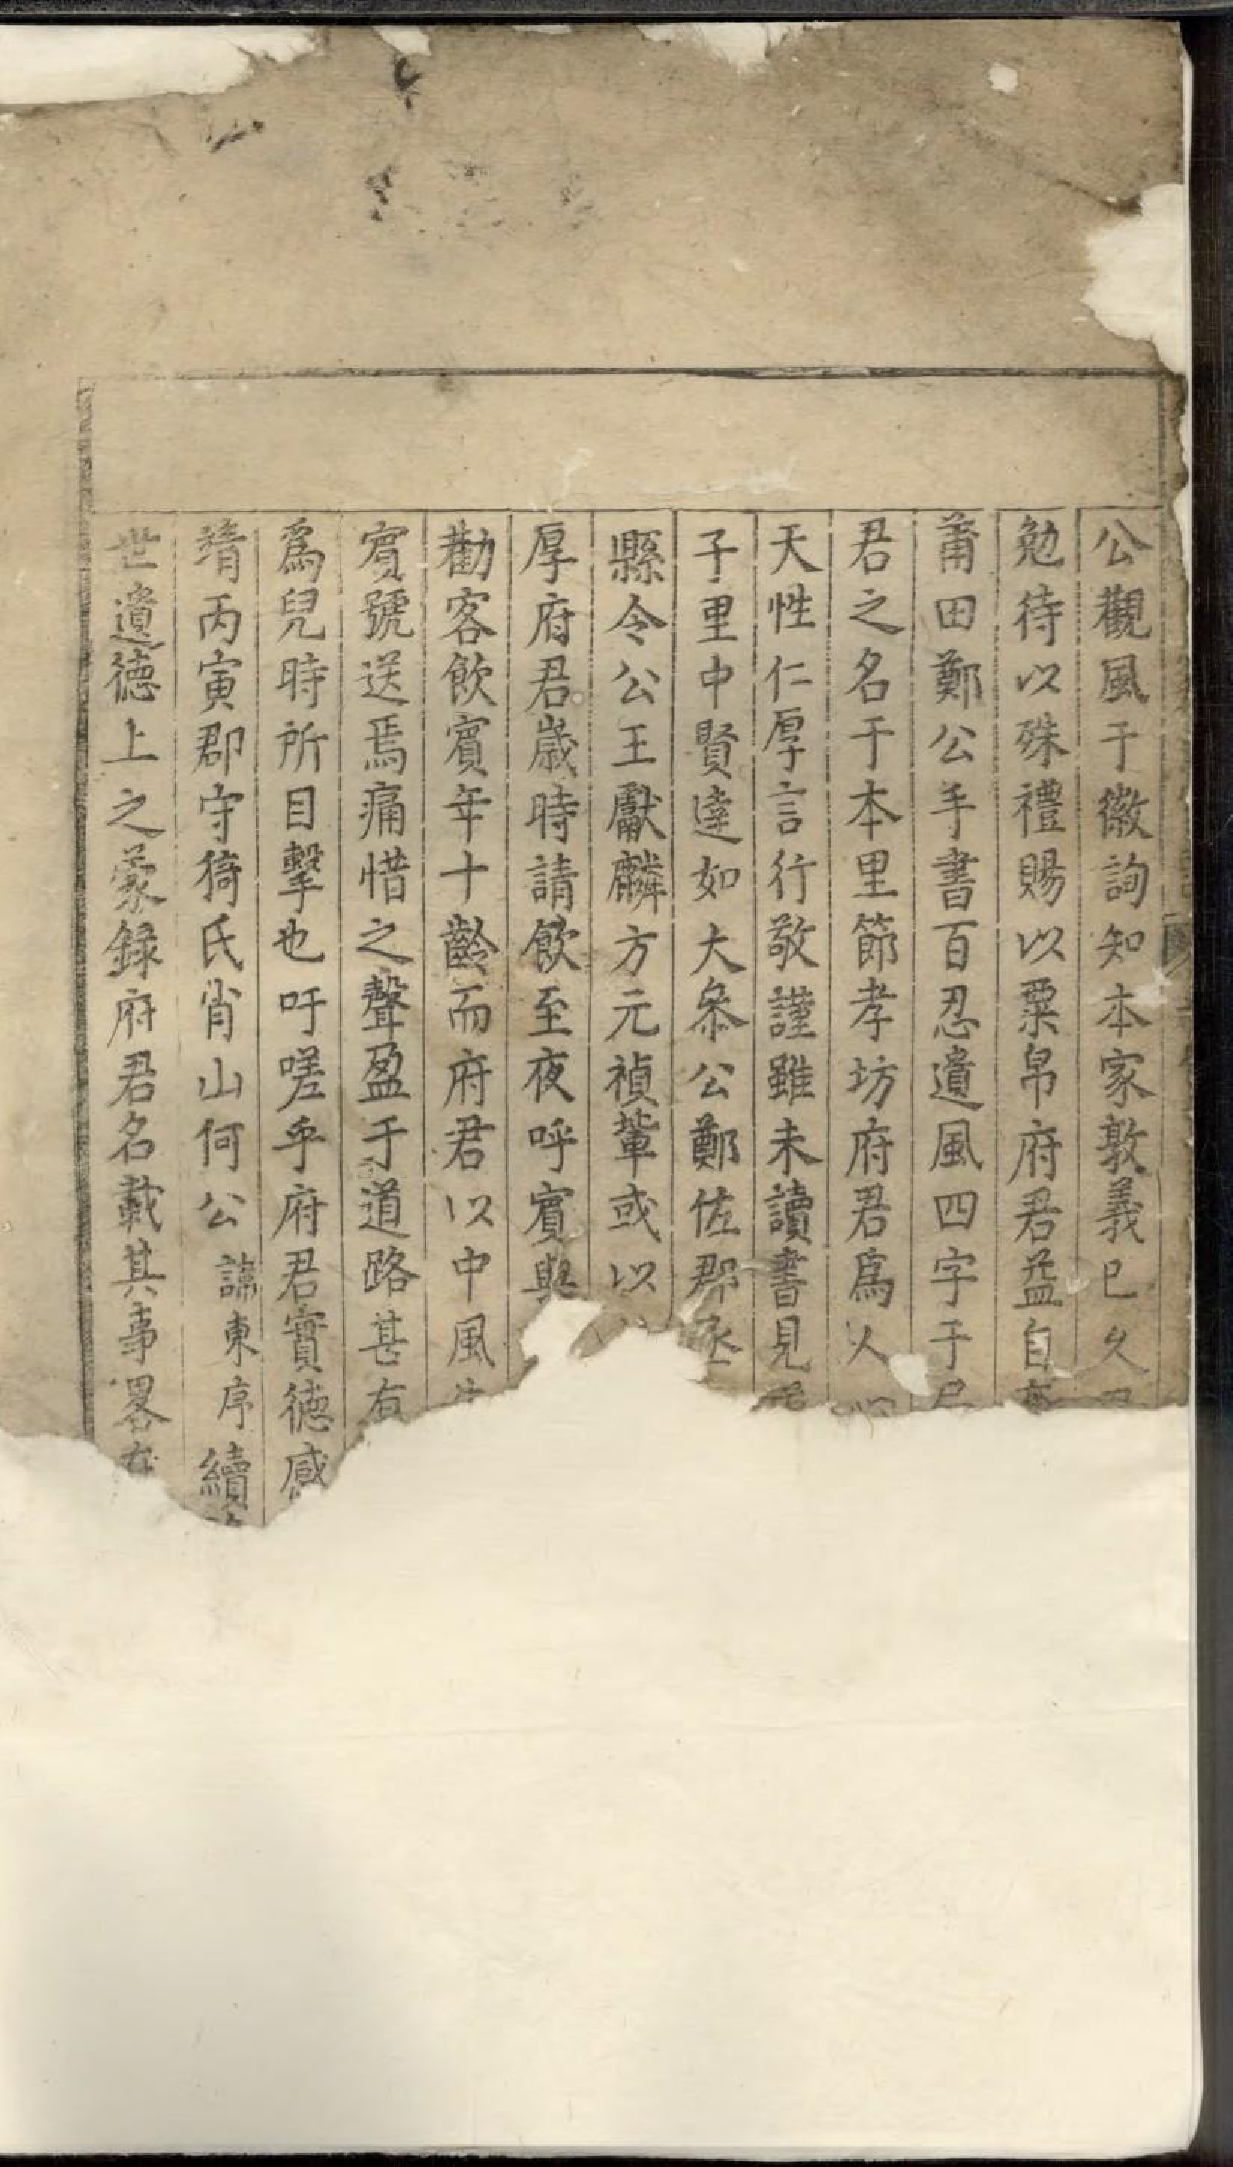 公觀風于徽詢知本家敦義已久
勉待以殊禮賜以粟帛府君益自
莆田鄭公手書百忍遺風四字于
君之名于本里節孝坊府君爲人
天性仁厚言行敬謹雖未讀書見
子里中賢達如大叅公鄭佐郡丞
縣令公王獻麟方元禎輩或以
厚府君歲時請飲至夜呼賓與
勸客飲賓年十齡而府君以中風
賓號送焉痛惜之聲盈于道路甚有
爲兒時所目擊也吁嗟乎府君實德感
清丙寅郡守猗氏肖山何公諱東序續
世遺德上之彙錄府君名載其事畧